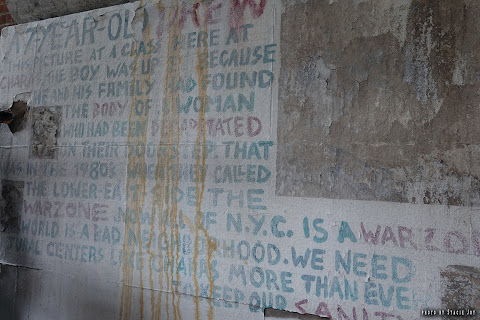 A 7-YEAR-OLD DREW
THIS PICTURE AT A CLASS HERE AT
CHARAS. THE BOY WAS UPSET BECAUSE
HE AND HIS FAMILY HAD FOUND
THE BODY OF A WOMAN
WHO HAD BEEN DECAPITATED
ON THEIR DOORSTEP. THAT
WAS IN THE 1980s WHEN THEY CALLED
THE LOWER-EAST SIDE THE
WARZONE. NOW ALL OF N.Y.C. IS A WARZONE
WORLD IS A BAD NEIGHBORHOOD. WE NEED
CULTURAL CENTERS LIKE CHARAS MORE THAN EVER
TO KEEP OUR SANITY
PHOTO BY STACIE JOY